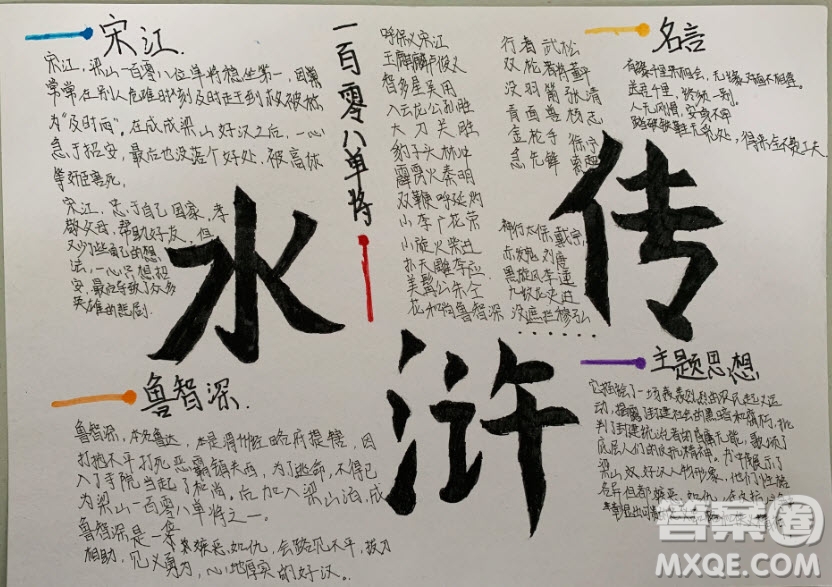 宋江
宋江，梁山一百零八位单将稳坐第一，因常
常常在别人危难时刻及时走到救
为“及时雨”。在成成梁山好汉之后，一心
急于招安，最后也没落个好处，被高俅
等奸臣害死。
宋江，忠于自己国家，孝
敬父母，帮助好友，但
又少了些自己的想
法，一心只想招
安，最后导致了众多
英雄的悲剧
鲁智深
鲁智深，本名鲁达，本是渭州经略府提辖，因
打抱不平打死恶霸镇关西，为了逃命，不得已
入了寺院当起了和尚。后加入梁山泊，成
为梁山一百零八单将之一。
鲁智深是一条嫉恶如仇，会路见不平，拔刀
相助，见义勇为，心地厚实的好汉。
一百零八单将
呼保义宋江
玉麒麟卢俊义
智多星吴用
入云龙公孙胜
大刀关胜
豹子头林冲
霹雳火秦明
双鞭呼延灼
小李广花荣
小旋风柴进
扑天雕李应
美髯公朱仝
花和尚鲁智深
行者武松
双枪将董平
没羽箭张清
青面兽杨志
金枪手徐宁
急先锋索超
神行太保戴宗
赤发鬼刘唐
黑旋风李逵
九纹龙史进
没遮拦穆弘
......
水
浒
传
名言
有缘千里来相会，无缘对面不相逢。
送君千里，终须一别。
人无刚骨，安身不牢
踏破铁鞋无觅处，得来全不费工夫
主题思想
它描绘了一场轰轰烈烈的农民起义运
动，揭露了封建社会的黑暗和腐朽，批
判了封建统治者的腐庸无能，歌颂了
底层人们的反抗精神。力中展示了
梁山众好汉人物形象，他们性格
各异但都嫉恶如仇，
答案圈
MXQE.COM